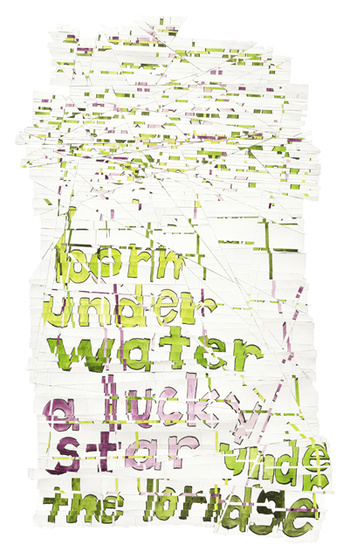 born
under
water
a lucky
star unde
the bridge